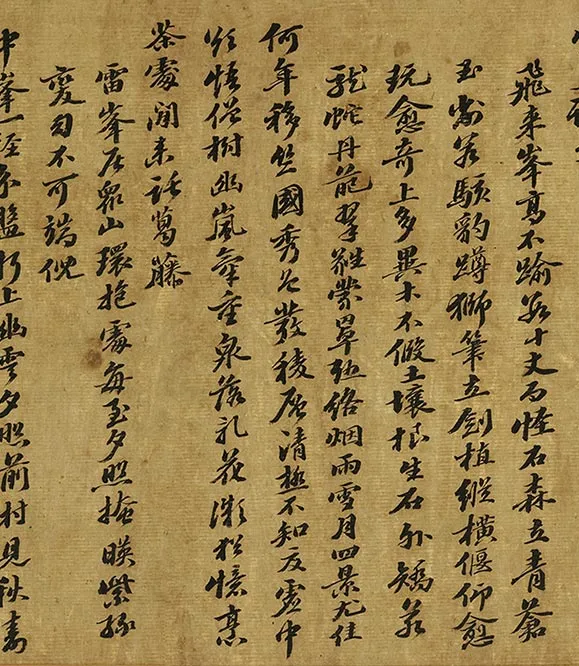 飛来峯高不踰數十丈而怪石森立青蒼
玉削若駭豹蹲獅筆立劍植縱橫偃仰愈
玩愈奇上多異木不假土壤根生石外矯若
龍蛇丹葩翠蕤蒙羃聯絡烟雨雪月四景尤佳
何年移竺國秀色發稜層清極不知夏虛中
欲悟僧樹幽嵐氣重泉落乳花澂猶憶烹
茶處閒来話葛藤
雷峯居衆山環抱處每至夕照掩暎紫綠
變幻不可端倪
中峯一徑分盤折上幽雲夕照前村見秋濤